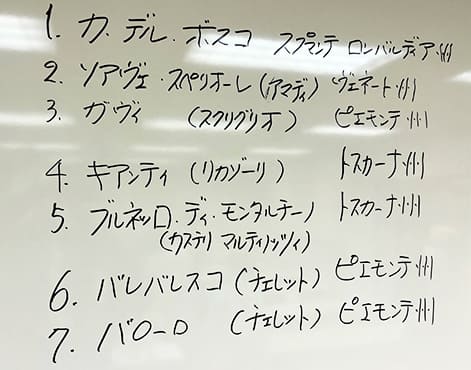 1. カ・デル・ボスコ スプマンテ ロンバルディア州
2. ソアヴェ・スペリオーレ(アマディ) ヴェネート州
3. ガヴィ (スクリグリオ) ピエモンテ州
4. キアンティ (リカゾーリ) トスカーナ州
5. ブルネッロ・ディ・モンタルチーノ トスカーナ州
(カステリ マルティノッツィ)
6. バレバレスコ(チェレット) ピエモンテ州
7. バローロ (チェレット) ピエモンテ州